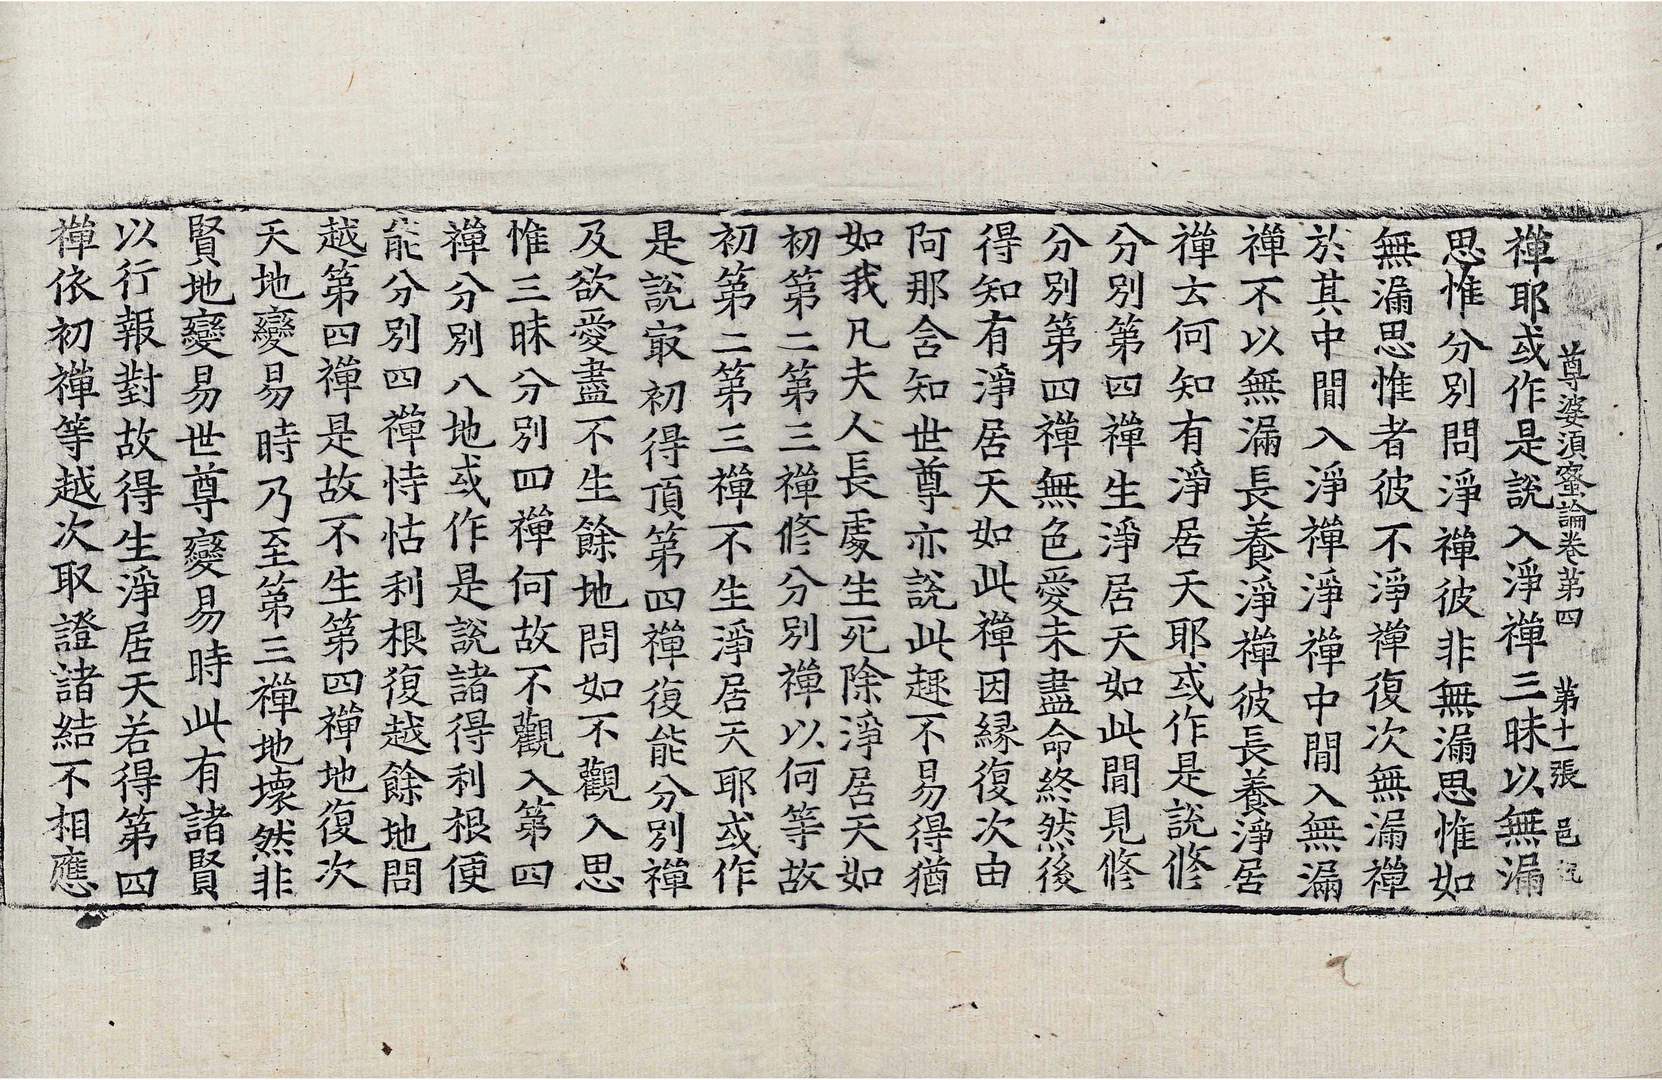 尊婆湏蜜論卷第四 第十一張 邑
禪耶或作是說入淨禪三昧以無漏
思惟分別問淨禪彼非無漏思惟如
無漏思惟者彼不淨禪復次無漏禪
於其中閒入淨禪淨禪中閒入無漏
禪不以無漏長養淨禪彼長養淨居
禪去何知有淨居天耶或作是說修
分別第四禪生淨居天如此閒見修
分別第四禪無色愛未盡命終然後
得知有淨居天如此禪因緣復次由
阿那含知世尊亦說此趣不易得猶
如我凡夫人長處生死除淨居天如
初第二第三禪修分別禪以何等故
初第二第三禪不生淨居天耶或作
是說㝡初得頂第四禪復能分別禪
及欲愛盡不生餘地問如不觀入思
惟三昧分別四禪何故不觀入第四
禪分別八地或作是說諸得利根便
能分別四禪恃怙利根復越餘地問
越第四禪是故不生第四禪地復次
天地變易時乃至第三禪地壞然非
賢地變易世尊變易時此有諸賢
以行報對故得生淨居天若得第四
禪依初禪等越次取證諸結不相應